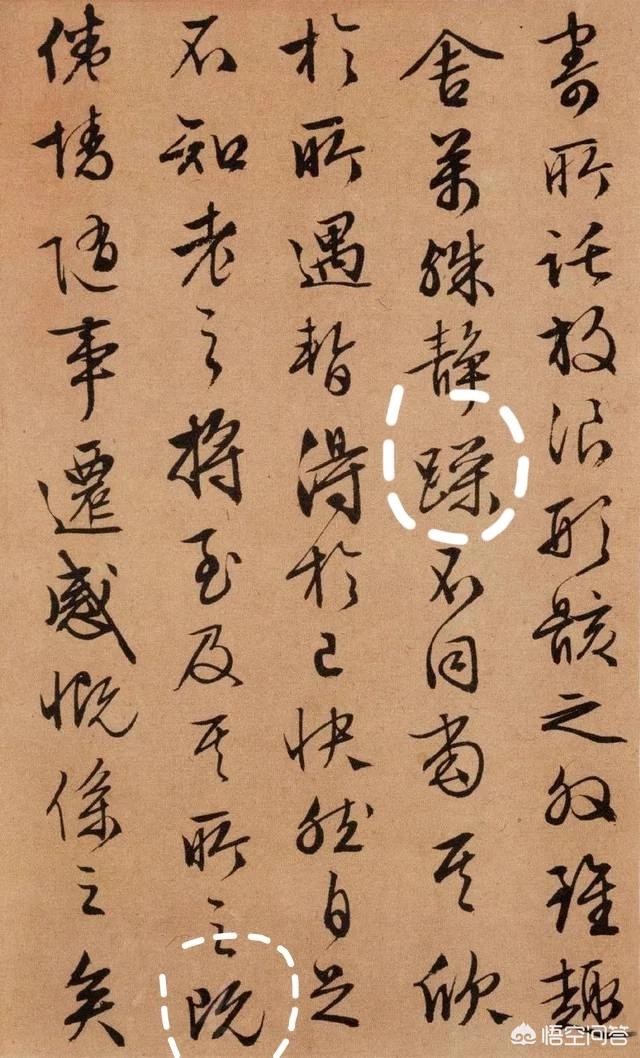 寄所託放浪形骸之外雖趣
舍萬殊靜躁不同當其欣
於所遇暫得於己快然自足
不知老之將至及其所之既
倦情隨事遷感慨係之矣
悟空问答